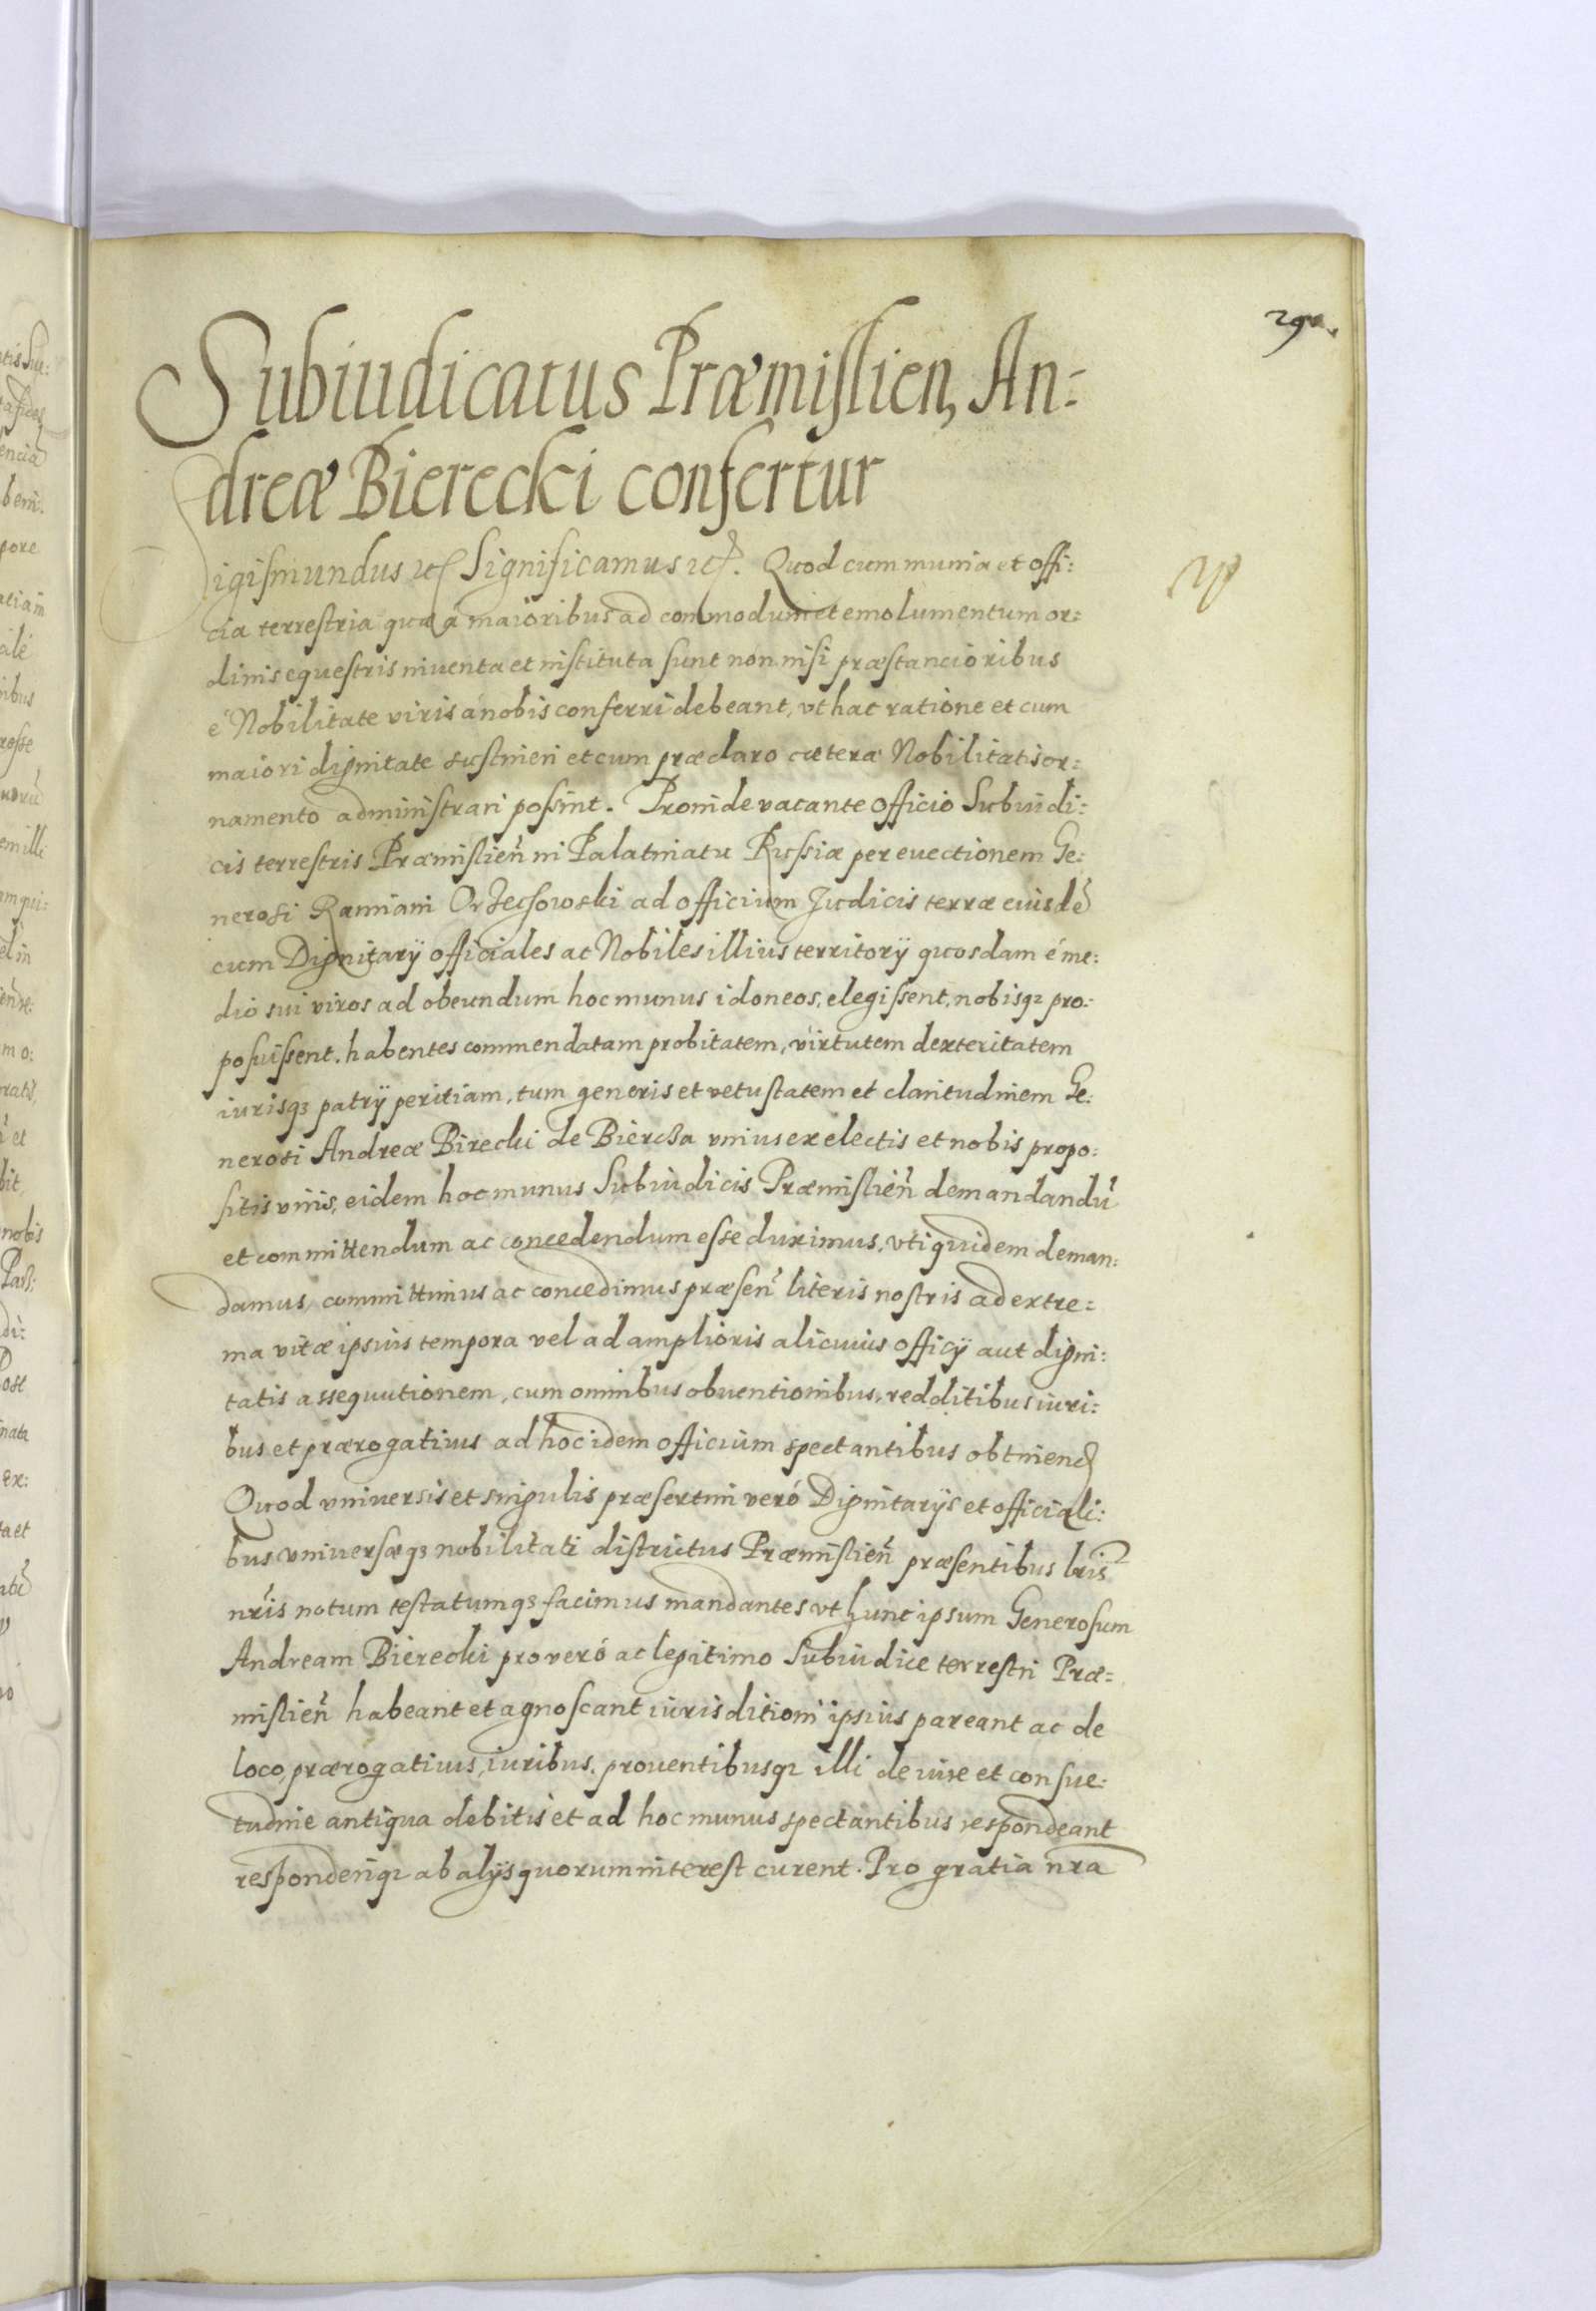 Subiudicatus Præmislien, An:
dreæ Bierecki confertur
Sigismundus etc Significamus etc. Quod cum munia et offi:
cia terrestria quæ a maioribus ad commodum et emolumentum or:
dinis equestris inuenta et instituta sunt non nisi præstancioribus
é Nobilitate viris á nobis conferri debeant, vt hac ratione et cum
maiori dignitate sustineri et cum præclaro cæteræ Nobilitatis or:
namento administrari possint. Proinde vacante officio Subiudi:
cis terrestris Præmislien̄ in Palatinatu Russiæ per euectionem Ge:
nerosi Ramiani Orzechowski ad officium Judicis terræ eiusdē
cum Dignitarÿ officiales ac Nobiles illius territorÿ quosdam é me:
dio sui viros ad obeundum hoc munus idoneos, elegissent, nobisq₃ pro:
posuissent. habentes commendatam probitatem, virtutem dexteritatem
iurisq₃ patrÿ peritiam, tum generis et vetustatem et claritudinem Ge:
nerosi Andreæ Birecki de Biercza vnius ex electis et nobis propo:
sitis viris, eidem hoc munus Subiudicis Præmislien̄ demandandū
et committendum ac concedendum esse duximus, vti quidem deman:
damus, committimus ac concedimus præsen̄ literis nostris ad extre=
ma vitæ ipsius tempora vel ad amplioris alicuius officÿ aut digni:
tatis assequutionem, cum omnibus obuentionibus, redditibus iuri:
bus et prærogatiuis ad hoc idem officium spectantibus obtinend
Quod vniuersis et singulis præsertim veró Dignitarÿs et officiali:
bus vniuersæq₃ nobilitati districtus Præmislien̄ præsentibus lrīs
nrīs notum testatumq₃ facimus mandantes vt hunc ipsum Generosum
Andream Bierecki pro veró ac legitimo Subiudice terrestri Præ=
mislien̄ habeant et agnoscant iurisditioni ipsius pareant ac de
loco, prærogatiuis, iuribus, prouentibusq₃ illi de iure et consue:
tudine antiqua debitis et ad hoc munus spectantibus respondeant
responderiq₃ ab alÿs quorum interest curent. Pro gratia nra